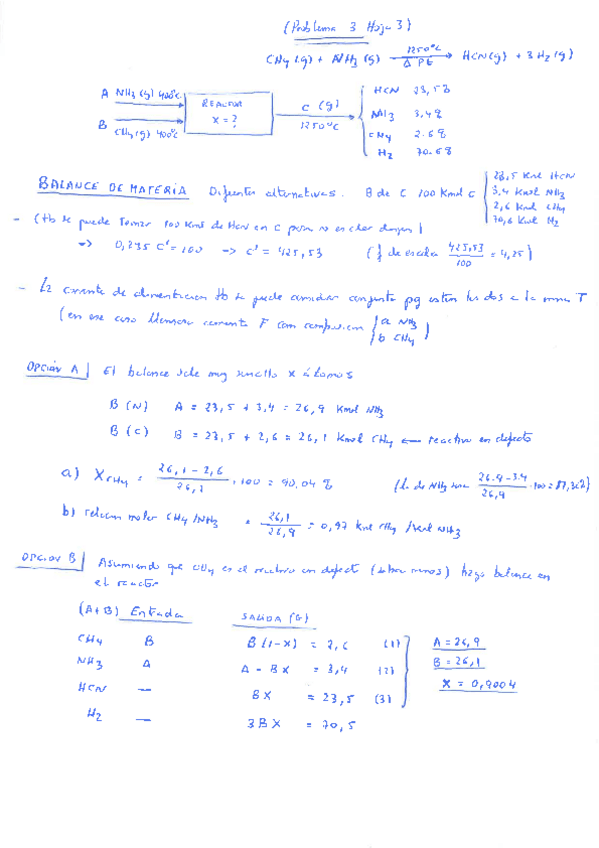 (Problema 3 Hoja 3)
CH4 (g) + NH3 (g) 1250ºC Δ Pt → HCN(g) + 3H2(g)
A NH3(g) 400ºC
B CH4(g) 400ºC
REACTOR
X = ?
C (g)
1250ºC
HCN 23,5%
NH3 3,4%
CH4 2.6%
H2 70.6%
BALANCE DE MATERIA Diferentes alternativas. B de C 100 Kmol C
23,5 Kmol HCN
3,4 Kmol NH3
2,6 Kmol CH4
70,6 Kmol H2
- (Tb se puede tomar 100 Kmol de HCN en C pero no es clar
=> 0,235 C' = 100 -> C' = 425,53 (f de escala 425,53/100 = 4,25)
- La corriente de alimentacion tb se puede considerar conjunta pq estan las dos a la misma T
(en ese caso llamarse corriente F con composicion a NH3
b CH4)
OPCIÓN A El balance sale muy sencillo x átomos
B (N) A = 23,5 + 3,4 = 26,9 Kmol NH3
B (C) B = 23,5 + 2,6 = 26,1 Kmol CH4 ← reactivo en defecto
a) XCH4 = 26,1 - 2,6 / 26,1 · 100 = 90.04 %
(la de NH3 sera 26.9 - 3.4 / 26,9 · 100 = 87,36%)
b) relacion molar CH4/NH3 = 26,1/26,9 = 0,97 Kmol CH4/Kmol NH3
OPCION B Asumiendo que CH4 es el reactivo en defecto (sobra menos) hago balance en
el reactor
(A+B) Entrada SALIDA (C)
CH4 B B(1-X) = 2,6 (1)
NH3 A A - BX = 3,4 (2)
HCN — BX = 23,5 (3)
H2 — 3BX = 70,5
A = 26,9
B = 26,1
X = 0,9004